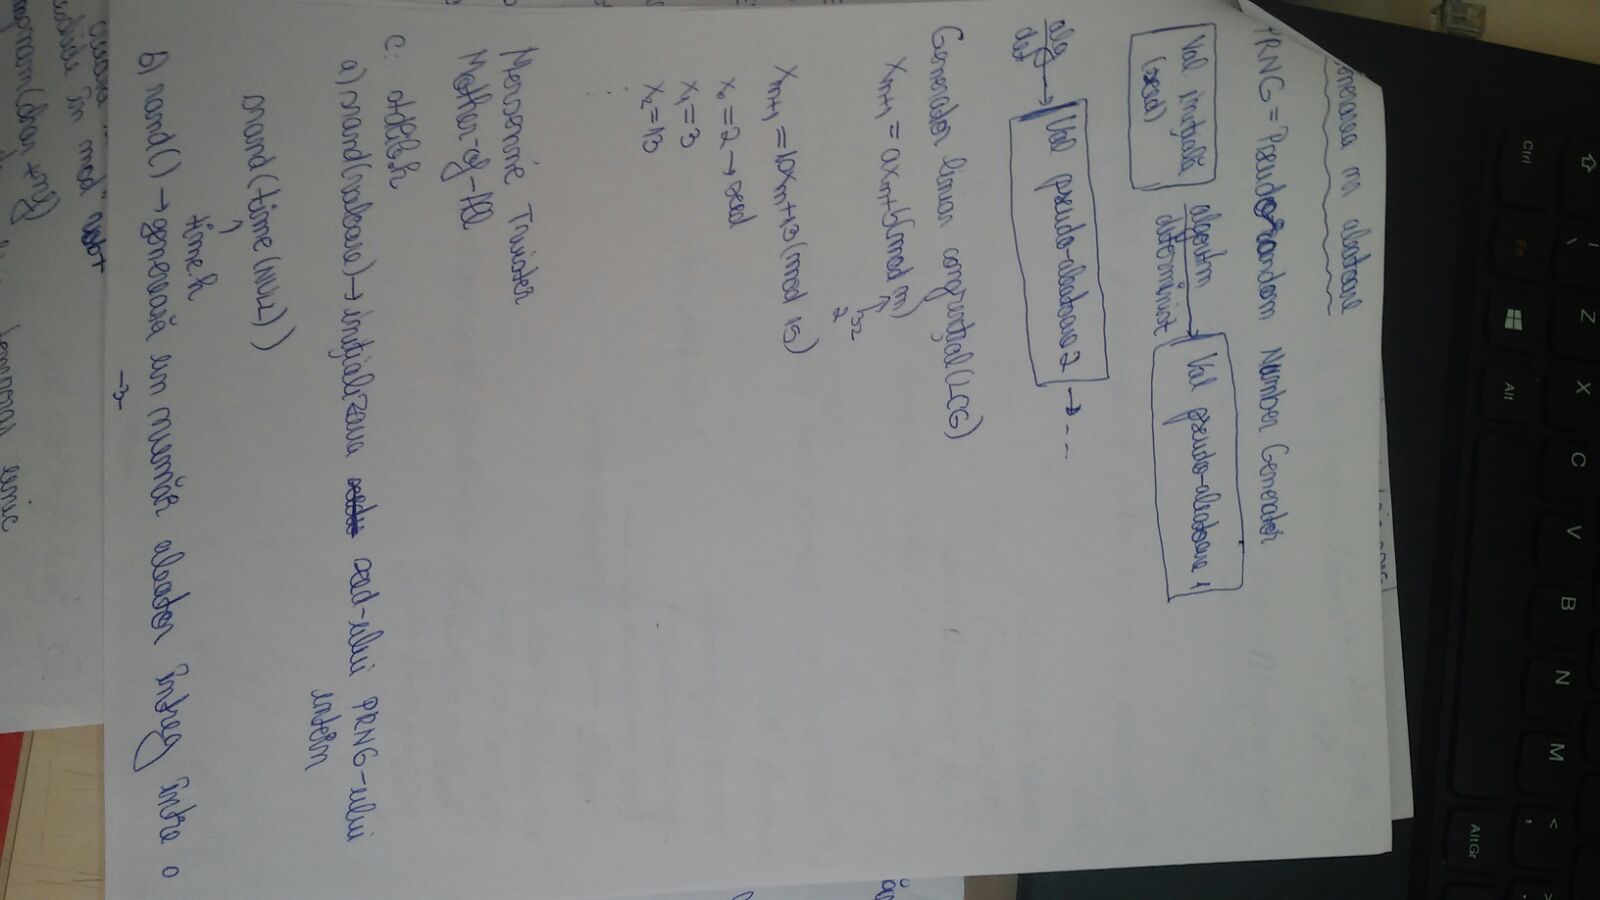 Z X C V B N M < ,
Ctrl Fn Alt AltGr
nerarea nr aleatoare
PRNG = Pseudorandom Number Generator
Val. inițială algoritm Val pseudo-aleatoare 1
(seed) determinist
alg Val pseudo-aleatoare 2 → ...
det
Generator liniar congruențial (LCG)
xn+1 = axn+b(mod m)
2^32
xn+1 = 10xn+13(mod 15)
x0 = 2 → seed
x1 = 3
x2 = 13
⋮
Mersenne Twister
Mother-of-All
C: stdlib.h
a) srand(valoare) → inițializarea seed-ului PRNG-ului
intern
srand(time(NULL))
↑
time.h
b) rand() → generează un număr aleator întreg între 0
-3-
în mod
temporar unic